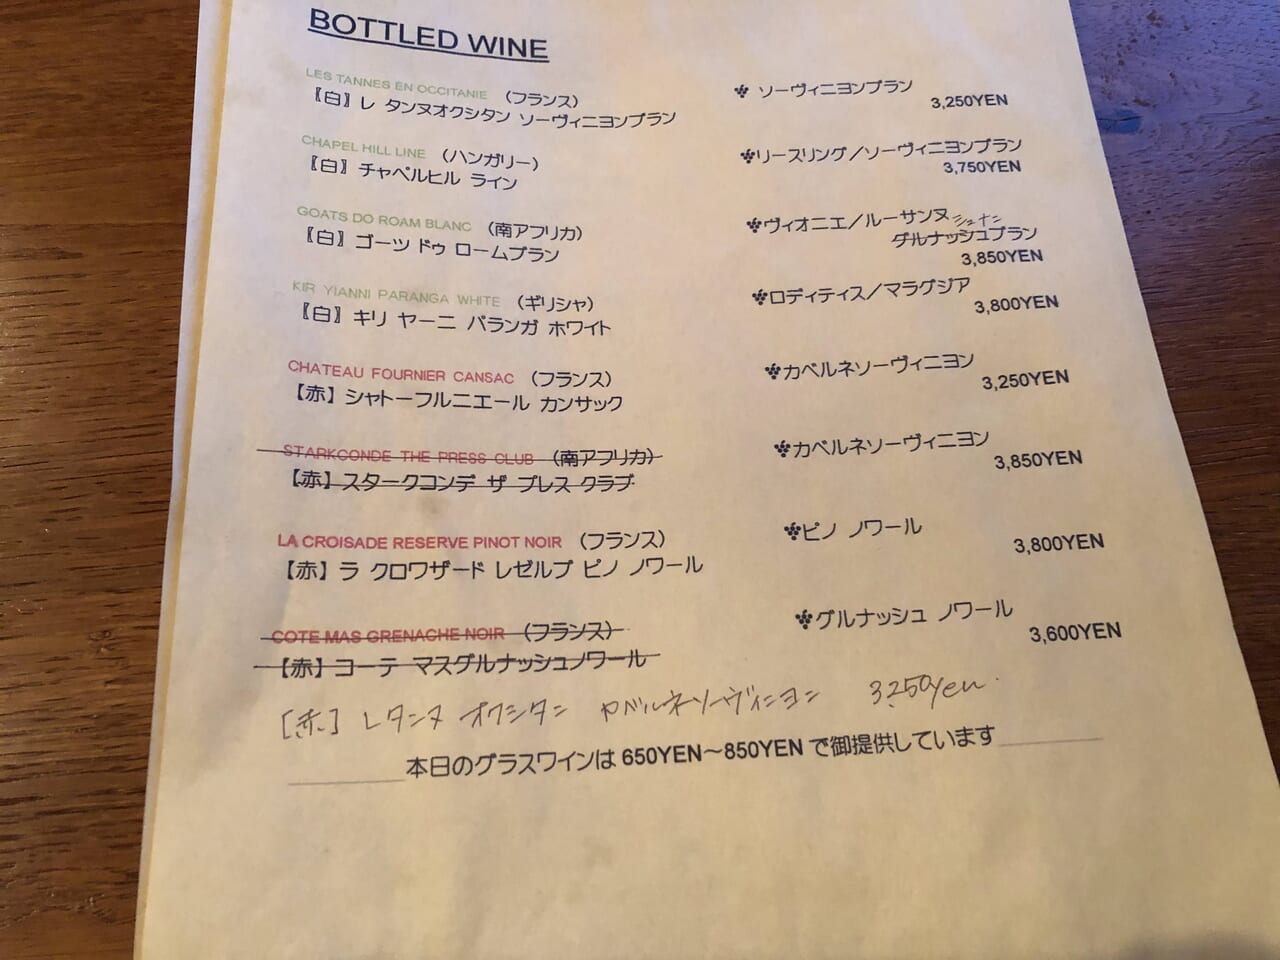 BOTTLED WINE
LES TANNES EN OCCITANIE （フランス）
【白】レ タンヌオクシタン ソーヴィニヨンブラン
ソーヴィニヨンブラン
3,250YEN
CHAPEL HILL LINE （ハンガリー）
【白】チャペルヒル ライン
リースリング／ソーヴィニヨンブラン
3,750YEN
GOATS DO ROAM BLANC （南アフリカ）
【白】ゴーツ ドゥ ロームブラン
ヴィオニエ／ルーサンヌ シュナン
グルナッシュブラン
3,850YEN
KIR YIANNI PARANGA WHITE （ギリシャ）
【白】キリ ヤーニ パランガ ホワイト
ロディティス／マラグジア
3,800YEN
CHATEAU FOURNIER CANSAC （フランス）
【赤】シャトーフルニエール カンサック
カベルネソーヴィニヨン
3,250YEN
STARKCONDE THE PRESS CLUB （南アフリカ）
【赤】スタークコンデ ザ プレス クラブ
カベルネソーヴィニヨン
3,850YEN
LA CROISADE RESERVE PINOT NOIR （フランス）
【赤】ラ クロワザード レゼルブ ピノ ノワール
ピノ ノワール
3,800YEN
COTE MAS GRENACHE NOIR （フランス）
【赤】コーテ マスグルナッシュノワール
グルナッシュ ノワール
3,600YEN
[赤] レタンヌ オクシタン カベルネソーヴィニヨン 3,250yen
本日のグラスワインは 650YEN～850YEN で御提供しています